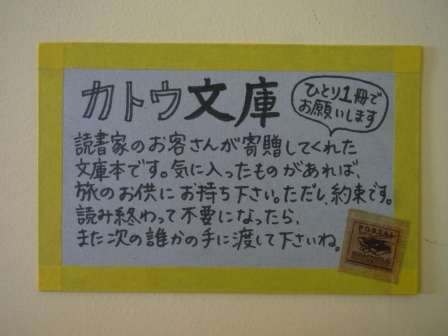 カトウ文庫
ひとり1冊で
お願いします
読書家のお客さんが寄贈してくれた
文庫本です。気に入ったものがあれば、
旅のお供にお持ち下さい。ただし、約束です。
読み終わって不要になったら、
また次の誰かの手に渡して下さいね。
POSTAL